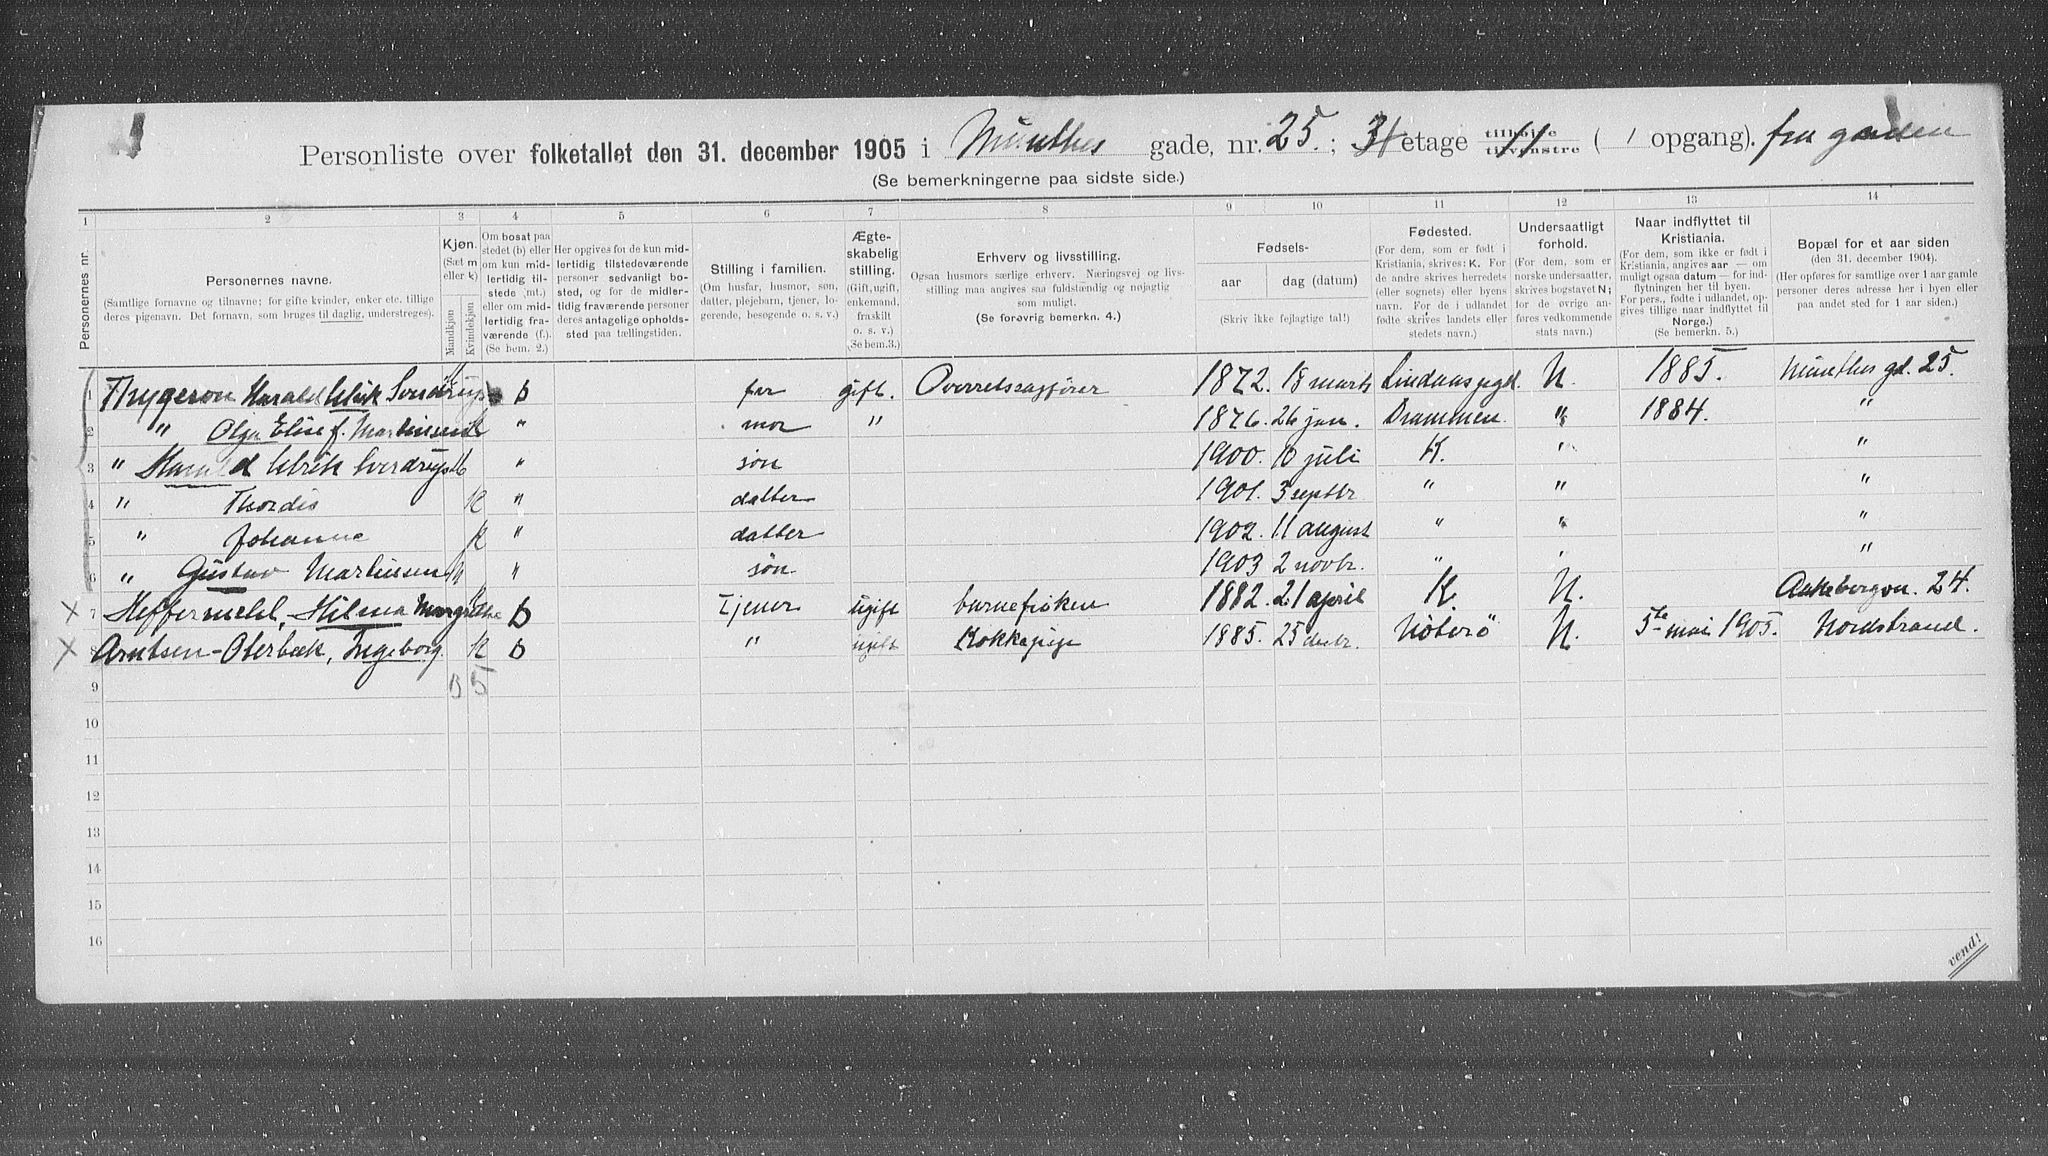 Personliste over folketallet den 31. december 1905 i Munthes gade, nr. 25. ; 3 etage tilhøjre tilvenstre ( 1 opgang). fra gaden
(Se bemerkningerne paa sidste side.)
1 2 3 4 5 6 7 8 9 10 11 12 13 14
Personernes nr.
Personernes navne.
(Samtlige fornavne og tilnavne; for gifte kvinder, enker etc. tillige
deres pigenavn. Det fornavn, som bruges til daglig, understreges).
Kjøn.
(Sæt m
eller k)
Mandkjøn
Kvindekjøn
Om bosat paa
stedet (b) eller
om kun mid-
lertidig til-
stede (mt.)
eller om mid-
lertidig fra-
værende (f.).
(Se bem. 2.)
Her opgives for de kun mid-
lertidig tilstedeværende
personer sedvanlig bo-
sted, og for de midler-
tidig fraværende personer
deres antagelige opholds-
sted paa tællingstiden.
Stilling i familien.
(Om husfar, husmor, søn,
datter, plejebarn, tjener, lo-
gerende, besøgende o. s. v.)
Ægte-
skabelig
stilling.
(Gift, ugift,
enkemand,
fraskilt
o. s. v.)
(Se bem.3.)
Erhverv og livsstilling.
Ogsaa husmors særlige erhverv. Næringsvej og livs-
stilling maa angives saa fuldstændig og nøjagtig
som muligt.
(Se forøvrig bemerkn. 4.)
Fødsels-
aar
dag (datum)
(Skriv ikke fejlagtige tal!)
Fødested.
(For dem, som er født i
Kristiania, skrives: K. For
de andre skrives herredets
(eller sognets) eller byens
navn. For de i udlandet
fødte skrives landets eller
stedets navn.)
Undersaatligt
forhold.
(For dem, som er
norske undersaatter,
skrives bogstavet N;
for de øvrige an-
føres vedkommende
stats navn.)
Naar indflyttet til
Kristiania.
(For dem, som ikke er født i
Kristiania, angives aar — om
muligt ogsaa datum — for ind-
flytningen her til byen.
For pers., fødte i udlandet, op-
gives tillige naar indflyttet til
Norge.)
(Se bemerkn. 5.)
Bopæl for et aar siden
(den 31. december 1904).
(Her opføres for samtlige over 1 aar gamle
personer deres adresse her i byen eller
paa andet sted for 1 aar siden.)
1 Thygeson Harald Ulrik Sverdrup b far gift. Overretssagfører 1872. 18 marts Lindaas pgd. N. 1885. Munthes gd. 25.
2 " Olga Elise f. Martinsen k " mor " 1876. 26 jan. Drammen. " 1884. "
3 " Harald Ulrik Sverdrup " søn 1900. 10 juli K. " "
4 " Thordis k " datter 1901. 3 septbr " " "
5 " Johanne k " datter 1902. 11 august " " "
6 " Gustav Martinsen " søn. 1903 2 novbr. " " "
7 Heffermehl, Hilma Margrethe b tjener ugift barnefrøken 1882. 21 april K. N. Aakebergvn. 24.
8 Arntsen-Oterbæk, Ingeborg. k b " ugift Kokkepige 1885. 25 decbr. Nøterø N. 5te mai 1905. Nordstrand.
9 3 5
10
11
12
13
14
15
16
vend!